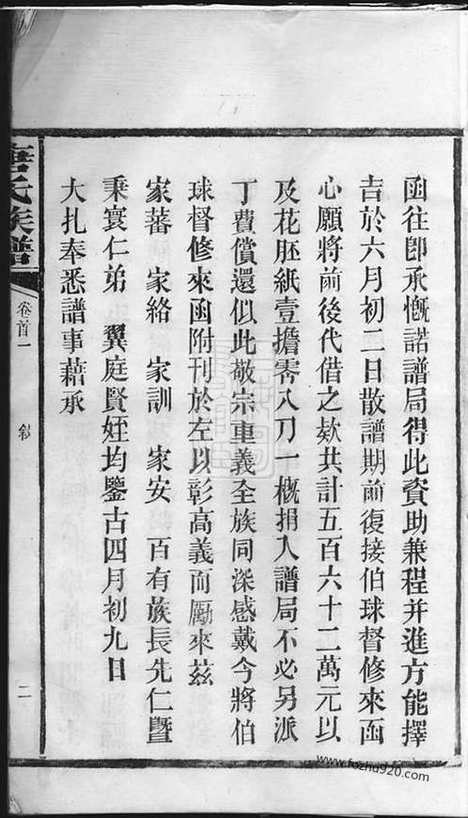 函往卽承慨諾譜局得此資助兼程并進方能擇
吉於六月初二日散譜期前復接伯球督修來函
心願將前後代借之欵共計五百六十二萬元以
及花胚紙壹擔零入刀一概捐入譜局不必另派
丁費償還似此敬宗重義全族同深感戴今將伯
球督修來函附刊於左以彰高義而勵來兹
家蕃 家絡 家訓 家安 百有族長先仁曁
秉寰仁弟 翼庭賢姪均鑒古四月初九日
大扎奉悉譜事藉承
唐氏族譜
卷首一
敘
二
www.fozhu920.com